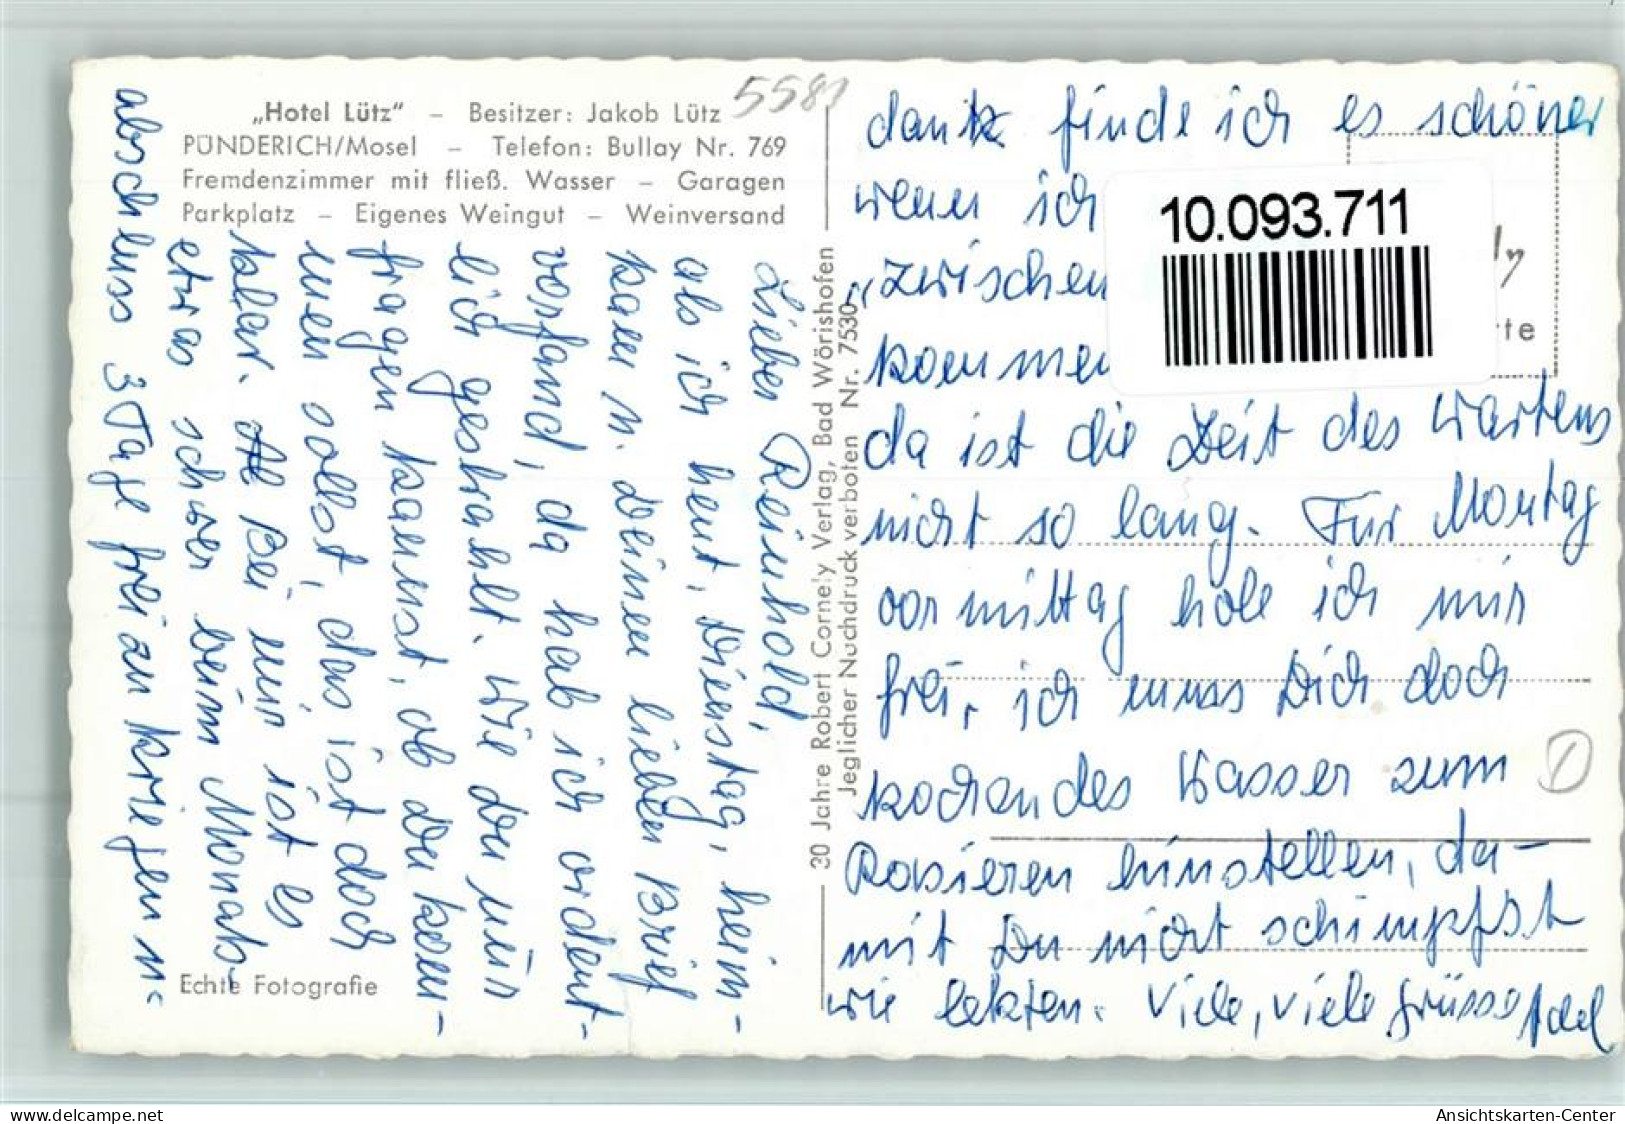 „Hotel Lütz“ – Besitzer: Jakob Lütz
PÜNDERICH/Mosel – Telefon: Bullay Nr. 769
Fremdenzimmer mit fließ. Wasser – Garagen
Parkplatz – Eigenes Weingut – Weinversand
558
Lieber Reinhold,
als ich heut, Dienstag, heim-
kam u. Deinen lieben Brief
vorfand, da hab ich ordent-
lich gestrahlt. Wie du mir
fragen kannst, ob Du kom-
men sollst, das ist doch
klar. Bei mir ist es
etwas schwer beim Monats-
abschluss 3 Tage frei zu kriegen u.
Echte Fotografie
30 Jahre Robert Cornely Verlag, Bad Wörishofen
Jeglicher Nachdruck verboten Nr. 7530
dann finde ich es schöner
wenn ich
„zwischen
kommen
da ist die Zeit des Wartens
nicht so lang. Für Montag
vormittag hole ich mir
frei, ich muss Dich doch
kochendes Wasser zum
Rasieren hinstellen, da-
mit Du nicht schimpfst
wie letzten. Viele, viele Grüsse
10.093.711
ly
rte
1
www.delcampe.net
Ansichtskarten-Center